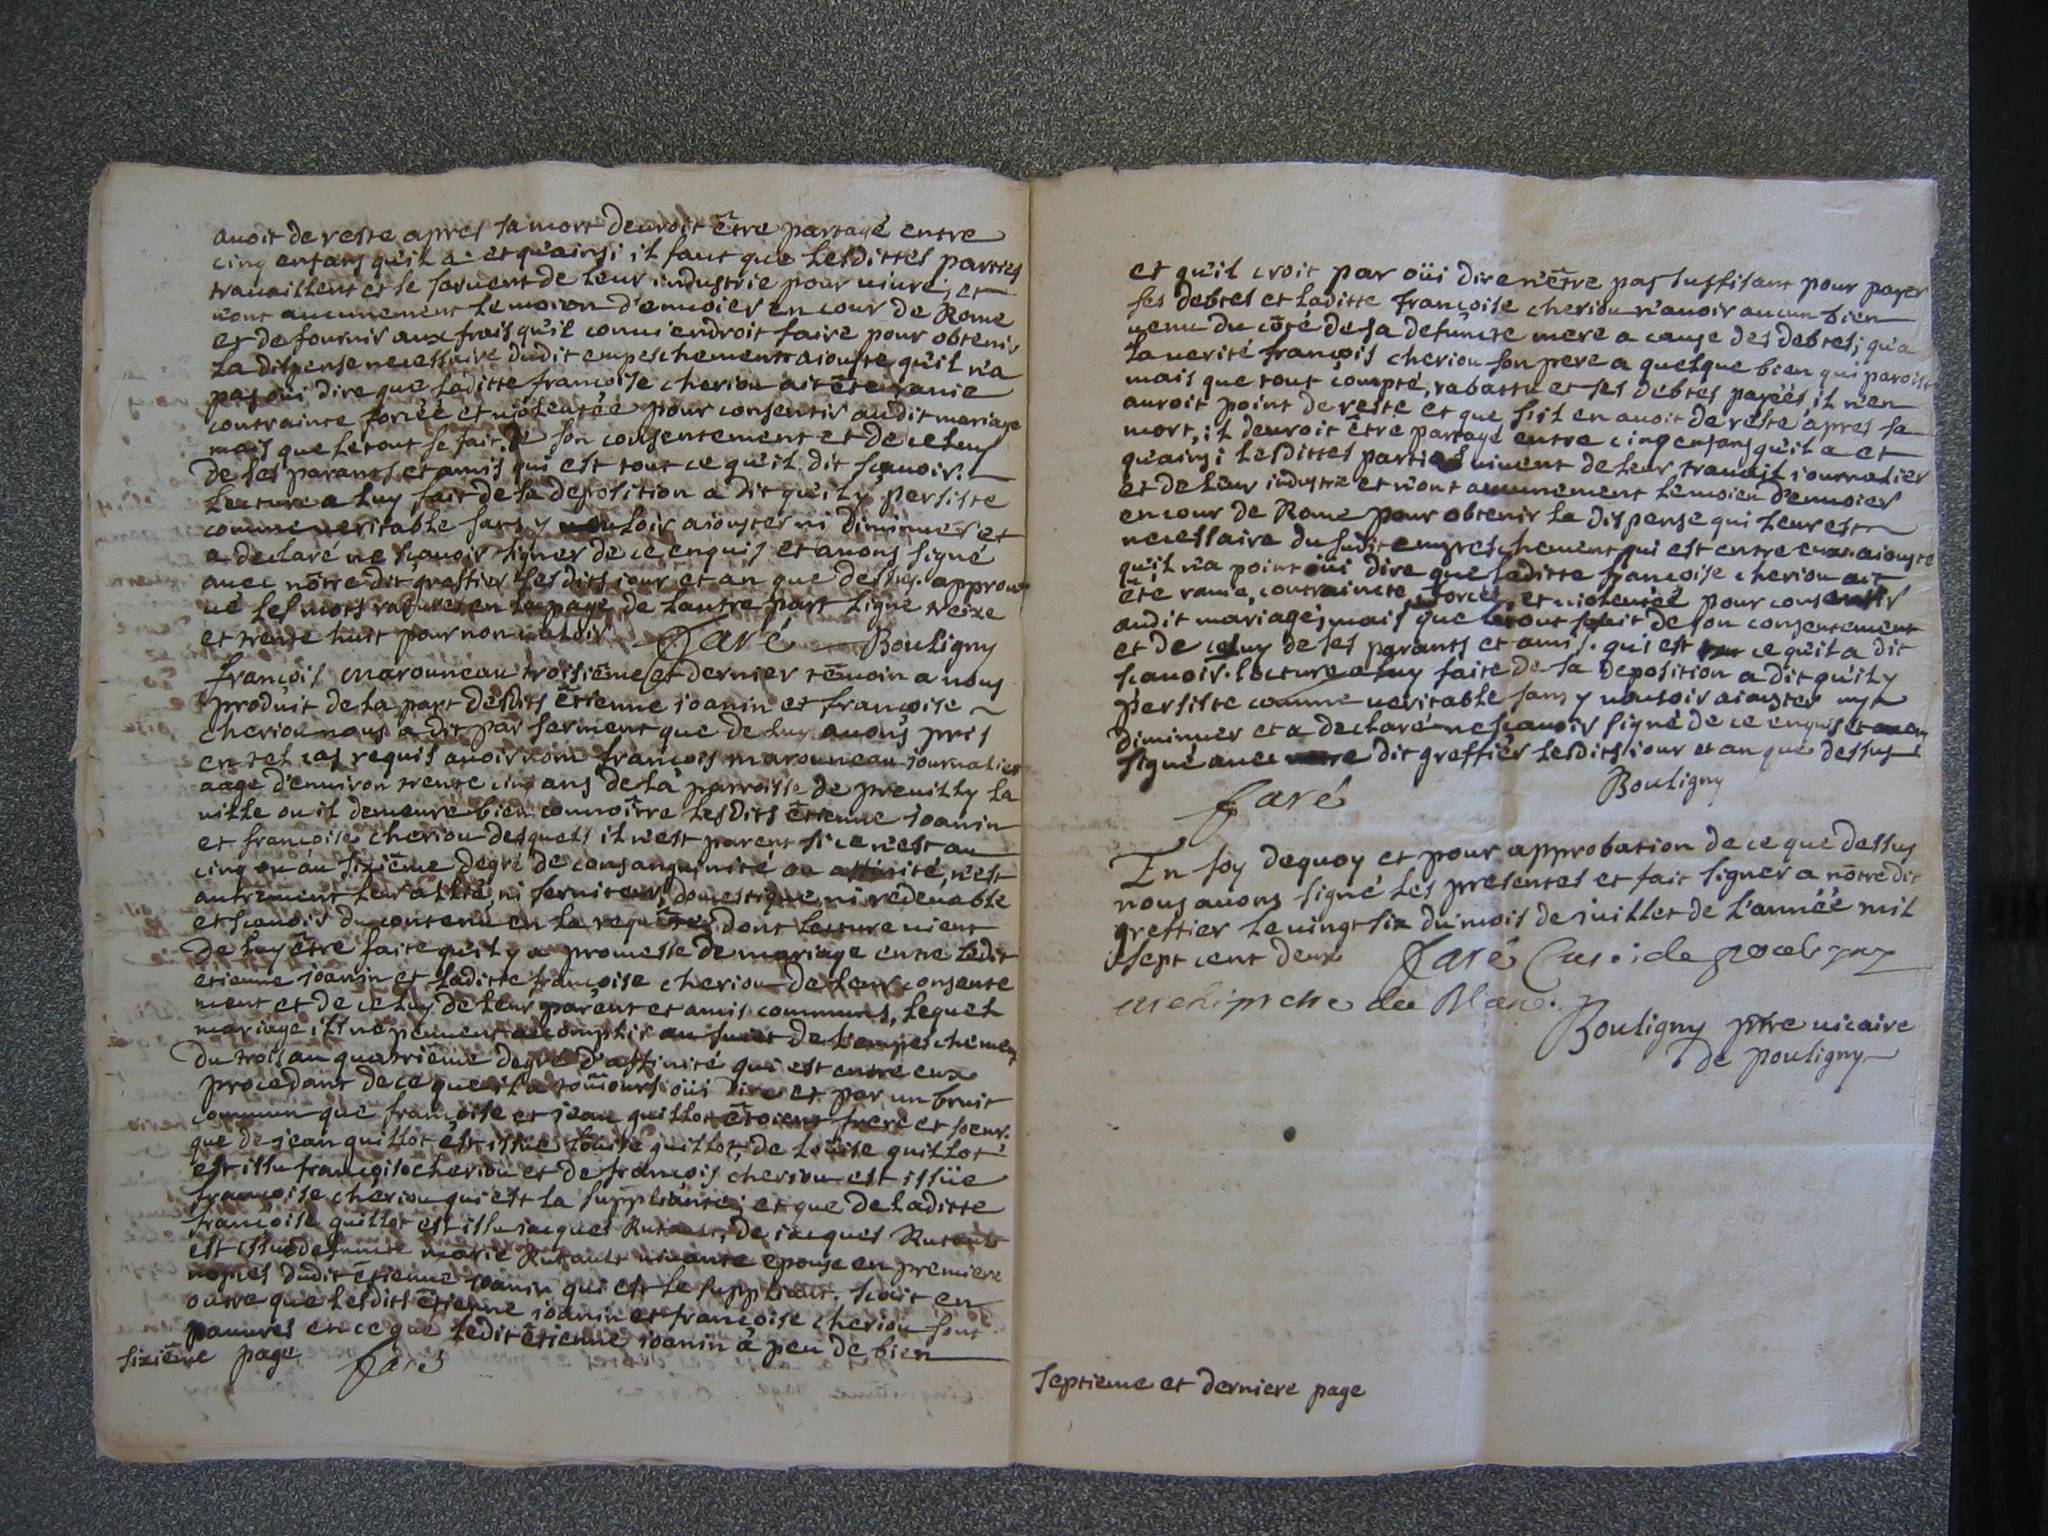 avoit de reste apres sa mort devroit être partagé entre
cinq enfans qu'il a et qu'ainsi il faut que lesdittes parties
travaillent et se servent de leur industrie pour vivre, et
n'ont aucunement le moien d'envoier en cour de Rome
et de fournir aux frais qu'il conviendroit faire pour obtenir
la dispense necessaire dudit empeschement aiouste qu'il n'a
pas oui dire que laditte françoise cheriou ait été ravie
contrainte forcée et violentée pour consentir audit mariage
mais que le tout se fait de son consentement et de celuy
de ses parants et amis qui est tout ce qu'il dit sçavoir.
Lecture a luy fait de sa deposition a dit qu'il y persiste
comme veritable sans y vouloir aiouster ni diminuer et
a declaré ne sçavoir signer de ce enquis et avons signé
avec nôtre dit greffier lesdits iour et an que dessus. approu
vé les mots raturez en la page de l'autre part ligne treize
et trente huit pour non valoir. Jaré Bouligny
françois marouneau troisiême et dernier têmoin a nous
produit de la part desdits êtienne ioanin et françoise
cheriou nous a dit par serment que de luy avons pris
en tel cas requis avoir nom françois marouneau iournalier
aagé d'environ trente cinq ans de la parroisse de preuilly la
ville ou il demeure bien connoître lesdits êtienne ioanin
et françoise cheriou desquels il n'est parent si ce n'est au
cinq ou au sixiême degré de consanguinité ou affinité, n'est
autrement leur allié, ni serviteur, domestique ni redevable
et sçavoir du contenu en la requête dont lecture vient
de luy être faite qu'il y a promesse de mariage entre ledit
etienne ioanin et laditte françoise cheriou de leur consente
ment et de celuy de leur parent et amis communs, lequel
mariage ils ne peuvent accomplir au suiet de l'empeschement
du trois au quatrieme degré d'affinité qui est entre eux
procedant de ce que il a touiours oüi dire et par un bruit
commun que françoise et jean guillot êtoient frere et soeur.
que de jean guillot est issue Louise guillot, de Loüise guillot
est issu françois cheriou et de françois cheriou est issüe
françoise cheriou qui est la suppliante; et que de laditte
françoise guillot est issu jacques Rutault, de jacques Rutault
est issue defuncte marie Rutault vivante epouse en premiere
nopces dudit êtienne ioanin qui est le suppliant. sçait en
outre que lesdits êtienne ioanin et françoise cheriou sont
pauvres en ce que ledit êtienne ioanin a peu de bien
sixiême page Jaré
et qu'il croit par oüi dire n'être pas suffisant pour payer
ses debtes et laditte françoise cheriou n'avoir aucun bien
venu du côté de sa defuncte mere a cause des debtes; qu'a
la verité françois cheriou son pere a quelque bien qui paroist
mais que tout compté, rabattu et ses debtes payées, il n'en
auroit point de reste et que s'il en avoit de reste apres sa
mort, il devroit être partagé entre cinq enfans qu'il a et
qu'ainsi lesdittes parties vivent de leur travail iournalier
et de leur industrie et n'ont aucunement le moien d'envoier
en cour de Rome pour obtenir la dispense qui leur est
necessaire du sudit empeschement qui est entre eux. aiouste
qu'il n'a point oui dire que laditte françoise cheriou ait
êté ravie, contraincte, forcée, et violentée pour consentir
audit mariage, mais que le tout se fait de son consentement
et de celuy de ses parants et amis. qui est ce qu'il a dit
sçavoir. lecture a luy faite de sa deposition a dit qu'il y
persiste comme veritable sans y vouloir aiouster ny
diminuer et a declaré ne sçavoir signé de ce enquis et avons
signé avec nôtre dit greffier lesdits iour et an que dessus
Jaré Bouligny
En foy dequoy et pour approbation de ce que dessus
nous avons signé les presentes et fait signer a nôtre dit
greffier le vingt six du mois de juillet de l'année mil
sept cent deux Jaré Curé de pouligny
archiprestre du Blanc.
Bouligny ptre vicaire
de pouligny
septieme et derniere page